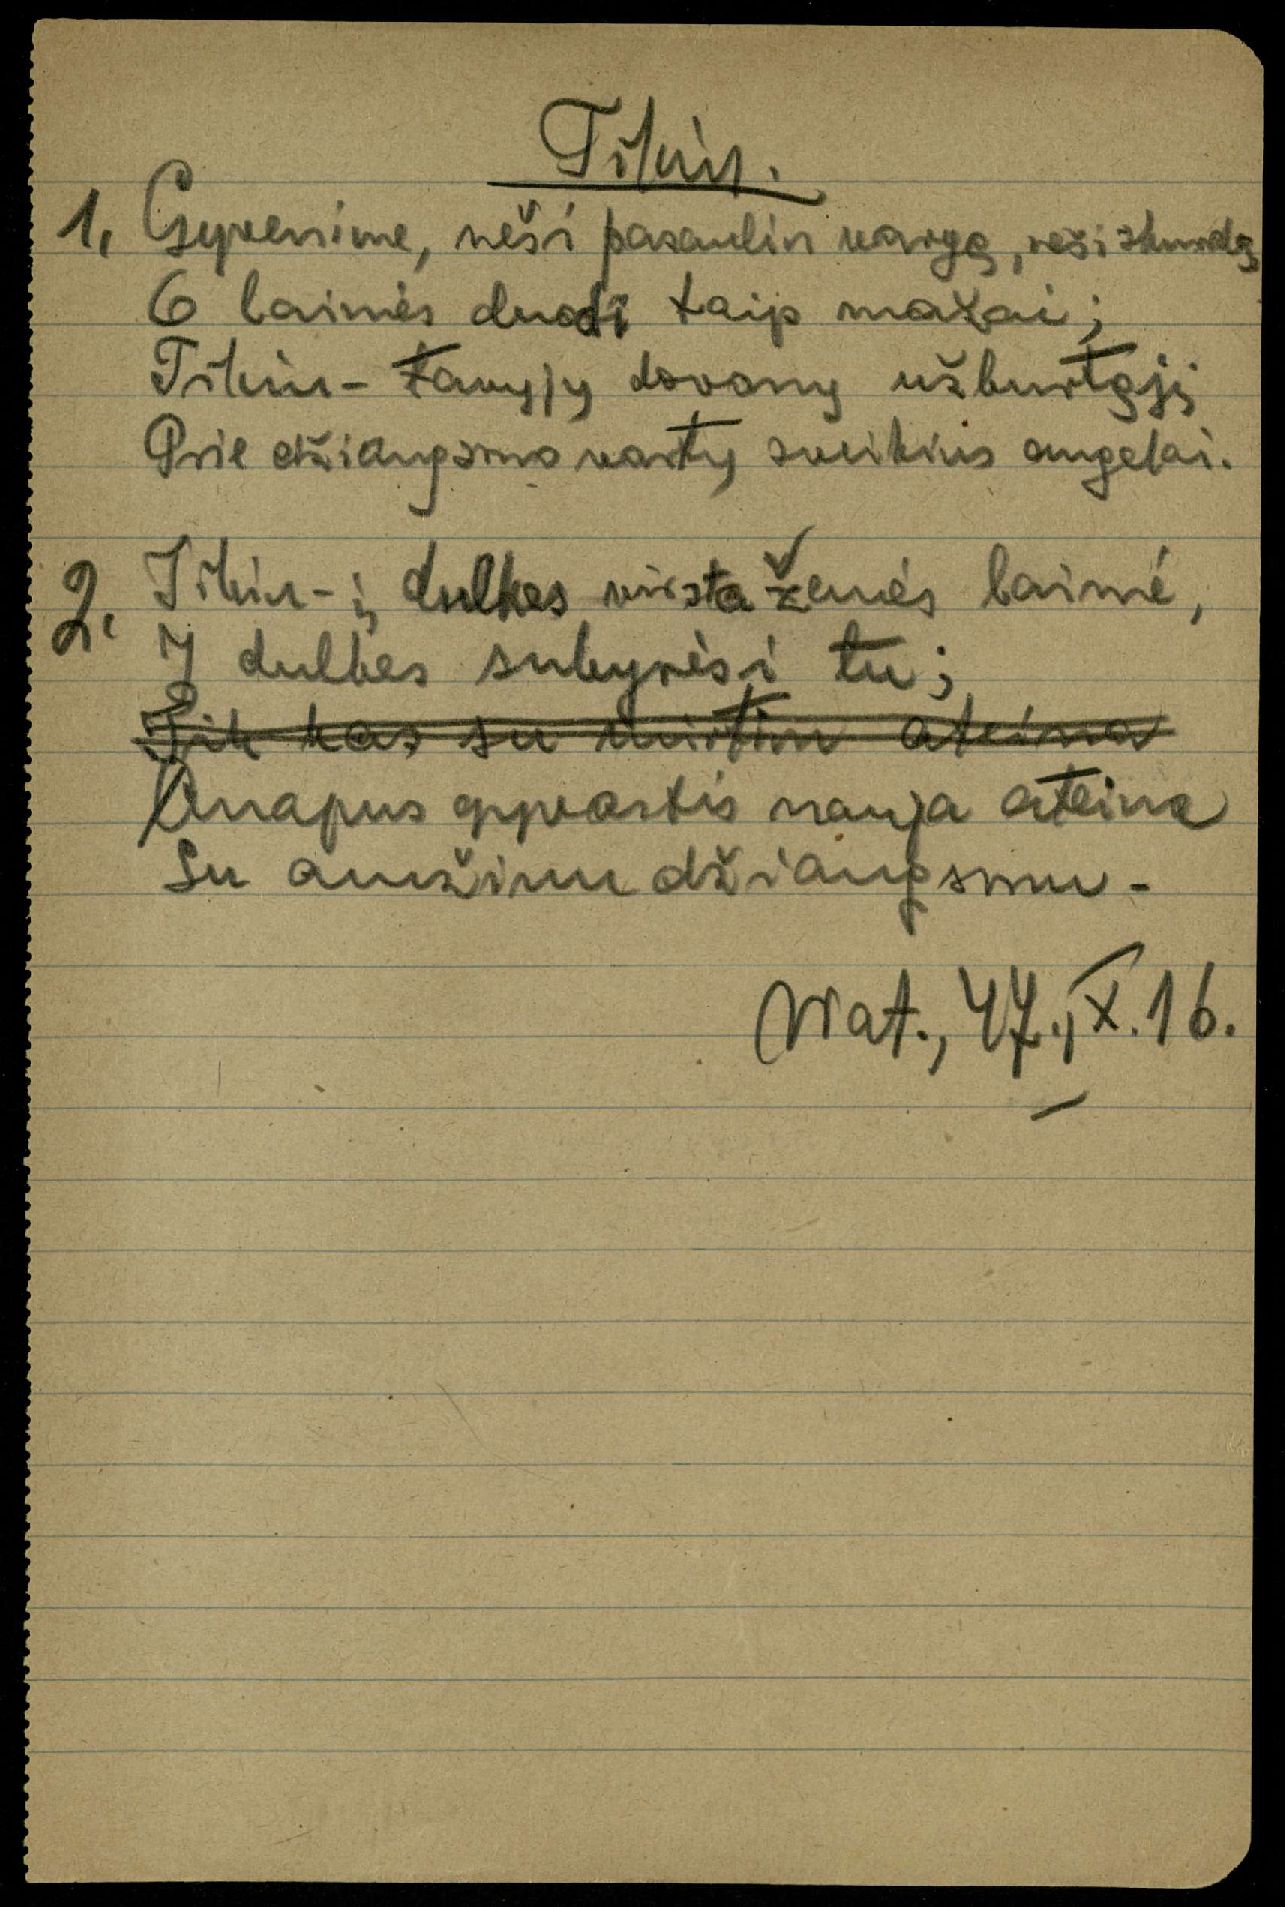 Tikiu.
1. Gyvenime, neši pasauliu vargą, neši skurdą
O laimės duodi taip mažai;
Tikiu - tavųjų dovanų užburtąjį
Prie džiaugsmo vartų sveikins angelai.
2. Tikiu - į dulkes virsta žemės laimė,
Į dulkes subyrėsi tu;
Tik kas su mirtim ateina
Anapus gyvastis nauja ateina
Su amžinu džiaugsmu -
Wat., 47., X. 16.